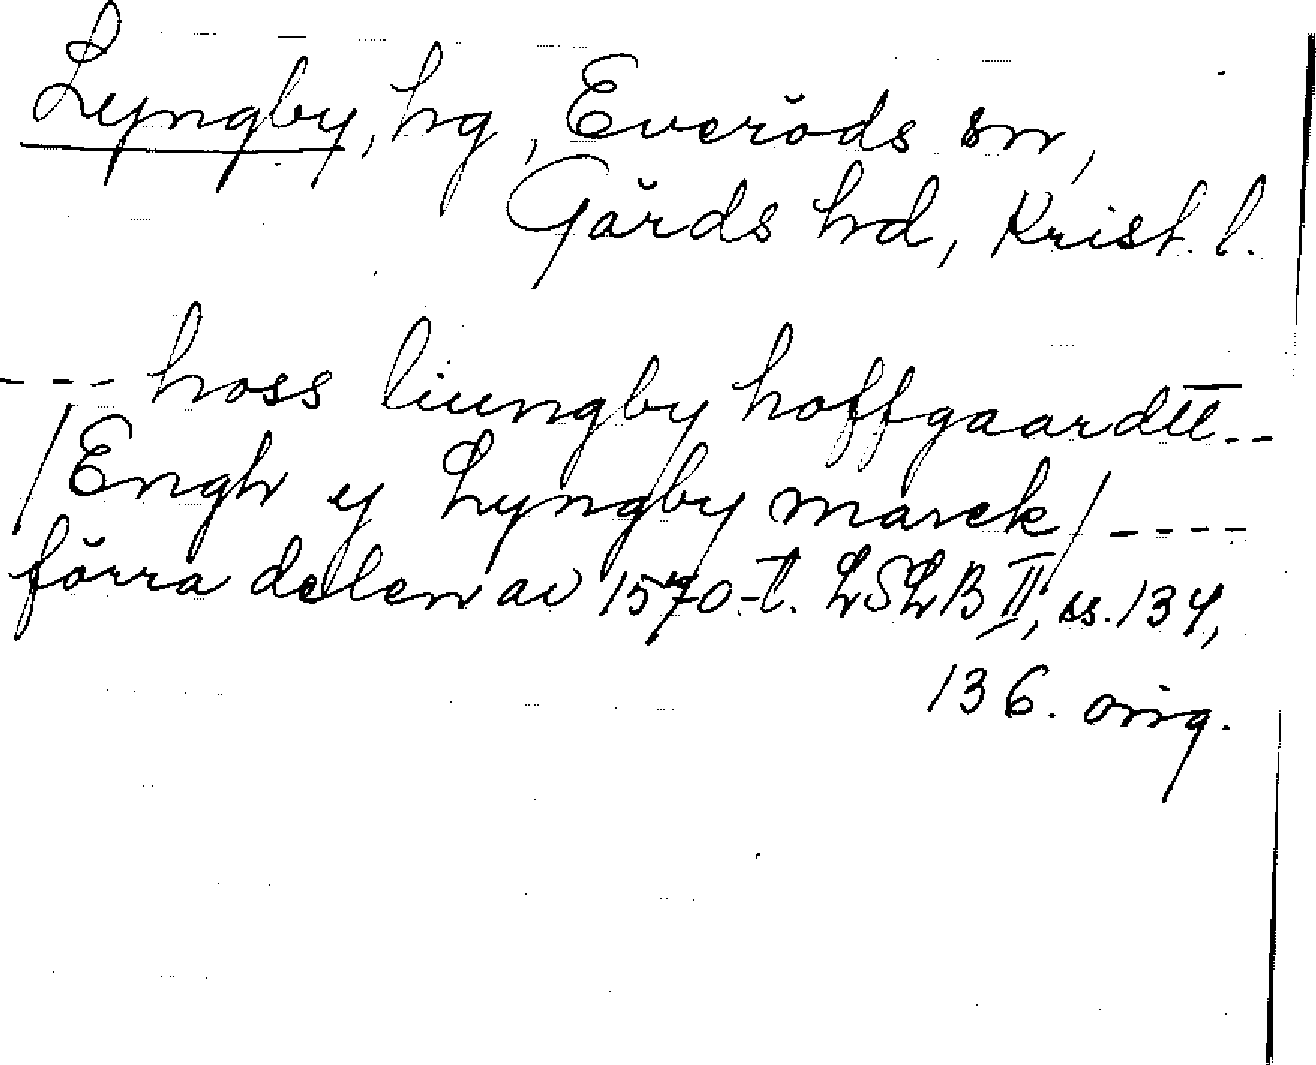 Lyngby, hg, Everöds sn,
Gärds hd, Krist. l.
--- hoss liungby hoffgaardtt --
/Engh y Lyngby marck/ ----
förra delen av 1570-t. LSLB II, ss. 134,
136. orig.